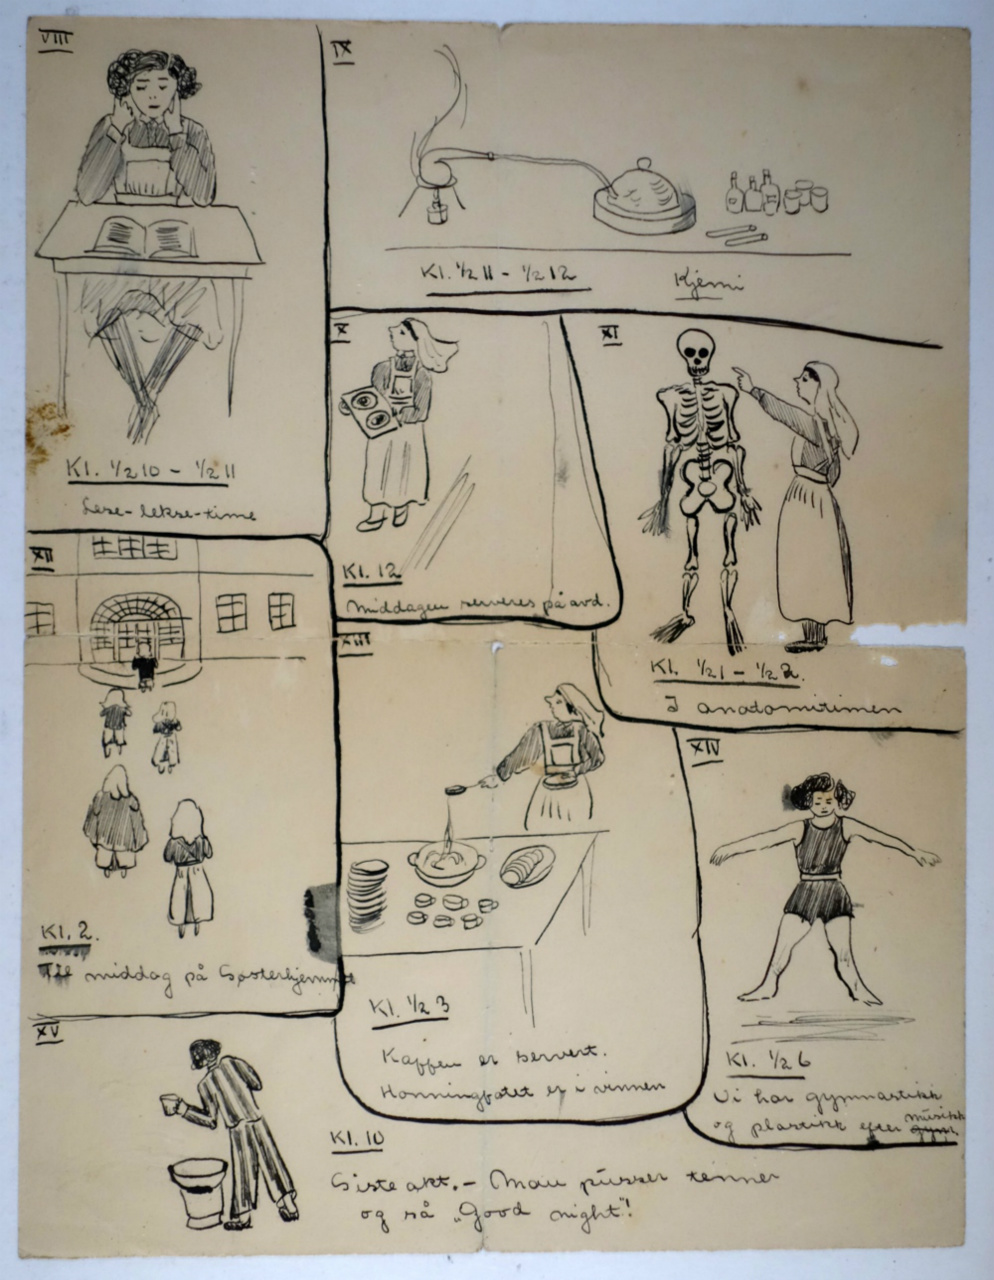 VIII
Kl. ½ 10 - ½ 11
Lese-lekse-time
IX
Kl. ½ 11 - ½ 12
Kjemi
X
Kl. 12
Middagen serveres på avd.
XI
Kl. ½ 1 - ½ 2.
I anatomitimen
XII
Kl. 2.
Til middag på Søsterhjemmet
XIII
Kl. ½ 3
Kaffen er servert.
Honningfatet er i vinnen
XIV
Kl. ½ 6
Vi har gymnastikk
og plastikk efter musikk
XV
Kl. 10
Siste akt. - Man pusser tenner
og så „Good night"!